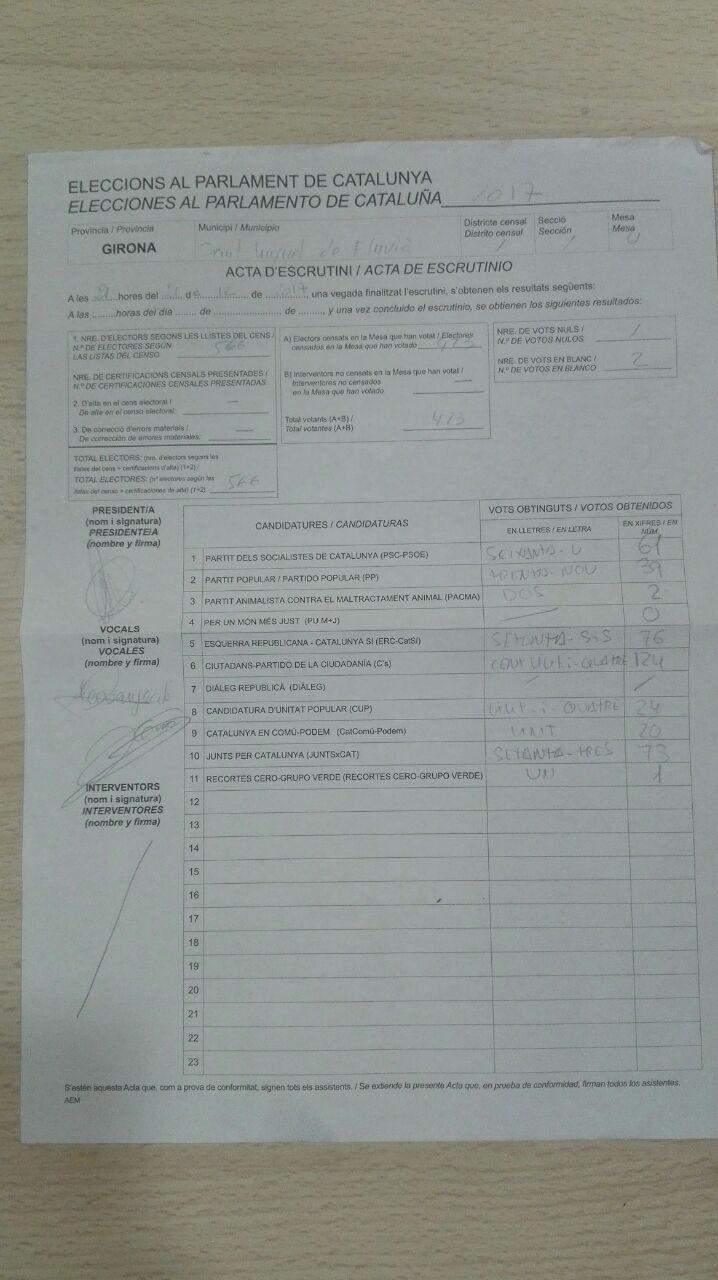 ELECCIONS AL PARLAMENT DE CATALUNYA
ELECCIONES AL PARLAMENTO DE CATALUÑA 2017
Província / Provincia
GIRONA
Municipi / Municipio
Sant Miquel de Fluvià
Districte censal
Distrito censal
1
Secció
Sección
1
Mesa
Mesa
U
ACTA D'ESCRUTINI / ACTA DE ESCRUTINIO
A les 21 hores del 21 de 12 de 2017, una vegada finalitzat l'escrutini, s'obtenen els resultats següents:
A las ........ horas del día ....... de ................. de ........, y una vez concluido el escrutinio, se obtienen los siguientes resultados:
1. NRE. D'ELECTORS SEGONS LES LLISTES DEL CENS /
N.º DE ELECTORES SEGÚN
LAS LISTAS DEL CENSO 566
NRE. DE CERTIFICACIONS CENSALS PRESENTADES /
N.º DE CERTIFICACIONES CENSALES PRESENTADAS
2. D'alta en el cens electoral /
De alta en el censo electoral: —
3. De correcció d'errors materials /
De corrección de errores materiales: —
TOTAL ELECTORS: (nre. d'electors segons les
llistes del cens + certificacions d'alta) (1+2) /
TOTAL ELECTORES: (nº electores según las
listas del censo + certificaciones de alta) (1+2) 566
A) Electors censats en la Mesa que han votat / Electores
censados en la Mesa que han votado 423
B) Interventors no censats en la Mesa que han votat /
Interventores no censados
en la Mesa que han votado —
Total votants (A+B) /
Total votantes (A+B) 423
NRE. DE VOTS NULS /
N.º DE VOTOS NULOS 1
NRE. DE VOTS EN BLANC /
N.º DE VOTOS EN BLANCO 2
PRESIDENT/A
(nom i signatura)
PRESIDENTE/A
(nombre y firma)
VOCALS
(nom i signatura)
VOCALES
(nombre y firma)
INTERVENTORS
(nom i signatura)
INTERVENTORES
(nombre y firma)
CANDIDATURES / CANDIDATURAS
VOTS OBTINGUTS / VOTOS OBTENIDOS
EN LLETRES / EN LETRA
EN XIFRES / EN NÚM.
1 PARTIT DELS SOCIALISTES DE CATALUNYA (PSC-PSOE) SEIXANTA-U 61
2 PARTIT POPULAR / PARTIDO POPULAR (PP) TRENTA-NOU 39
3 PARTIT ANIMALISTA CONTRA EL MALTRACTAMENT ANIMAL (PACMA) DOS 2
4 PER UN MÓN MÉS JUST (PU M+J) — 0
5 ESQUERRA REPUBLICANA - CATALUNYA SÍ (ERC-CatSí) SETANTA-SIS 76
6 CIUTADANS-PARTIDO DE LA CIUDADANÍA (C's) CENT VINT-i-QUATRE 124
7 DIÀLEG REPUBLICÀ (DIÀLEG) / /
8 CANDIDATURA D'UNITAT POPULAR (CUP) VINT-i-QUATRE 24
9 CATALUNYA EN COMÚ-PODEM (CatComú-Podem) VINT 20
10 JUNTS PER CATALUNYA (JUNTSxCAT) SETANTA-TRES 73
11 RECORTES CERO-GRUPO VERDE (RECORTES CERO-GRUPO VERDE) UN 1
12
13
14
15
16
17
18
19
20
21
22
23
S'estén aquesta Acta que, com a prova de conformitat, signen tots els assistents. / Se extiende la presente Acta que, en prueba de conformidad, firman todos los asistentes.
AEM